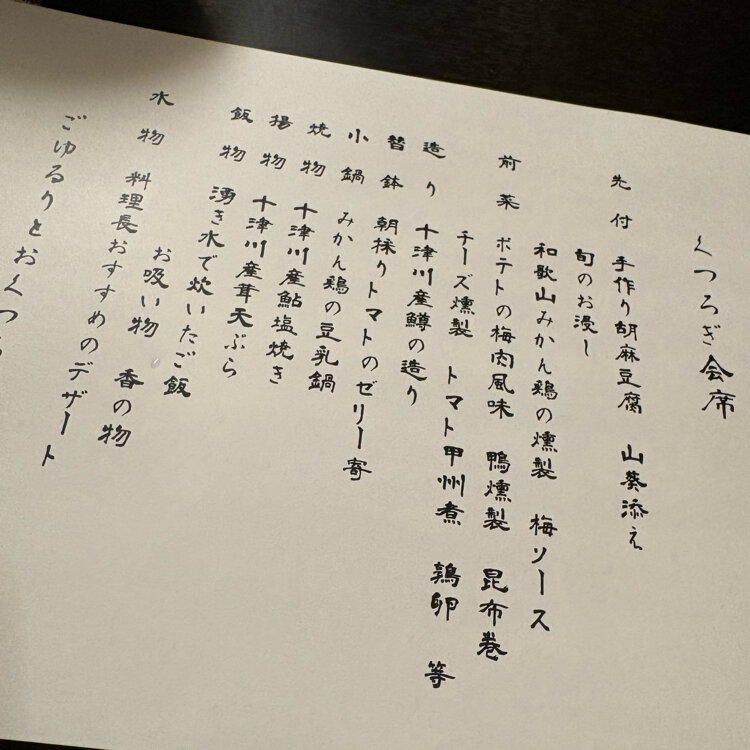 くつろぎ会席
先付 手作り胡麻豆腐 山葵添え
旬のお浸し
和歌山みかん鶏の燻製 梅ソース
前菜 ポテトの梅肉風味 鴨燻製 昆布巻
チーズ燻製 トマト甲州煮 鶉卵 等
造り 十津川産鱒の造り
替鉢 朝採りトマトのゼリー寄
小鍋 みかん鶏の豆乳鍋
焼物 十津川産鮎塩焼き
揚物 十津川産茸天ぷら
飯物 湧き水で炊いたご飯
お吸い物 香の物
水物 料理長おすすめのデザート
ごゆるりとおくつろ